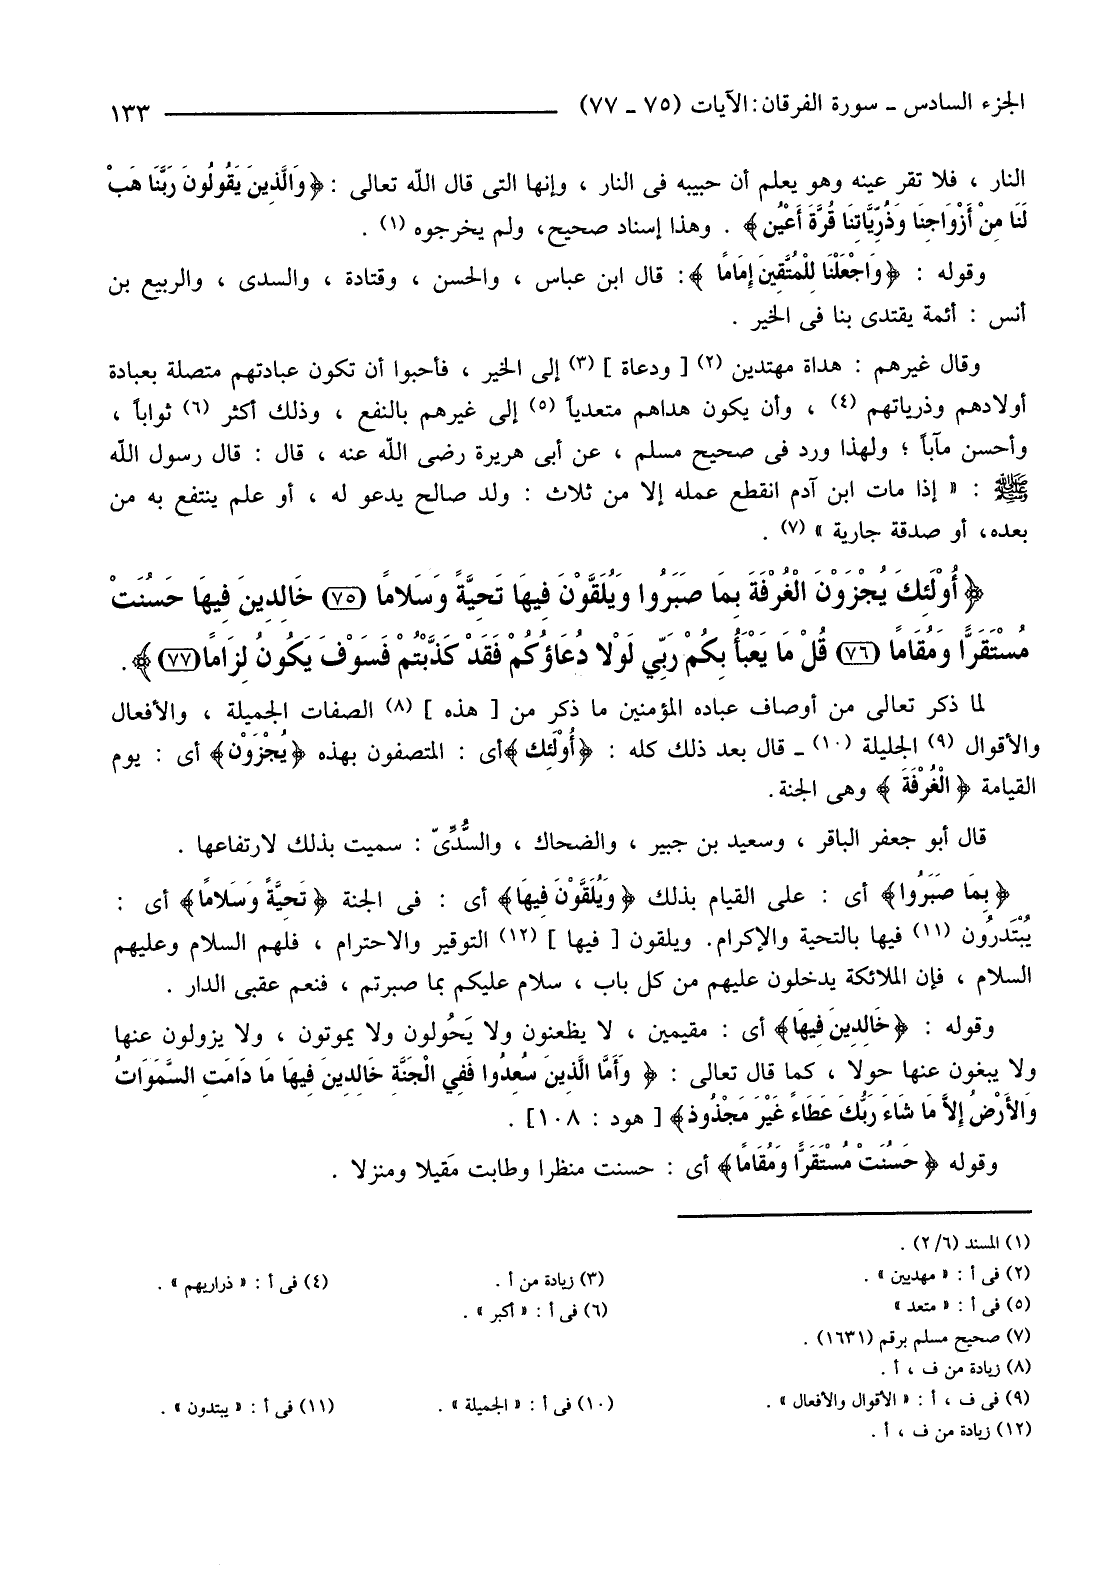 الجزء السادس - سورة الفرقان: الآيات (٧٥ - ٧٧) ١٣٣
النار ، فلا تقر عينه وهو يعلم أن حبيبه فى النار ، وإنها التى قال الله تعالى : ﴿ وَالَّذِينَ يَقُولُونَ رَبَّنَا هَبْ
لَنَا مِنْ أَزْوَاجِنَا وَذُرِّيَّاتِنَا قُرَّةَ أَعْيُنٍ ﴾ . وهذا إسناد صحيح، ولم يخرجوه (١) .
وقوله : ﴿ وَاجْعَلْنَا لِلْمُتَّقِينَ إِمَامًا ﴾ : قال ابن عباس ، والحسن ، وقتادة ، والسدى ، والربيع بن
أنس : أئمة يقتدى بنا فى الخير .
وقال غيرهم : هداة مهتدين (٢) [ ودعاة ] (٣) إلى الخير ، فأحبوا أن تكون عبادتهم متصلة بعبادة
أولادهم وذرياتهم (٤) ، وأن يكون هداهم متعدياً (٥) إلى غيرهم بالنفع ، وذلك أكثر (٦) ثواباً ،
وأحسن مآباً ؛ ولهذا ورد فى صحيح مسلم ، عن أبى هريرة رضى الله عنه ، قال : قال رسول الله
ﷺ : « إذا مات ابن آدم انقطع عمله إلا من ثلاث : ولد صالح يدعو له ، أو علم ينتفع به من
بعده، أو صدقة جارية » (٧) .
﴿ أُوْلَئِكَ يُجْزَوْنَ الْغُرْفَةَ بِمَا صَبَرُوا وَيُلَقَّوْنَ فِيهَا تَحِيَّةً وَسَلامًا (٧٥) خَالِدِينَ فِيهَا حَسُنَتْ
مُسْتَقَرًّا وَمُقَامًا (٧٦) قُلْ مَا يَعْبَأُ بِكُمْ رَبِّي لَوْلا دُعَاؤُكُمْ فَقَدْ كَذَّبْتُمْ فَسَوْفَ يَكُونُ لِزَامًا (٧٧) ﴾ .
لما ذكر تعالى من أوصاف عباده المؤمنين ما ذكر من [ هذه ] (٨) الصفات الجميلة ، والأفعال
والأقوال (٩) الجليلة (١٠) - قال بعد ذلك كله : ﴿ أُوْلَئِكَ ﴾ أى : المتصفون بهذه ﴿ يُجْزَوْن ﴾ أى : يوم
القيامة ﴿ الْغُرْفَةَ ﴾ وهى الجنة.
قال أبو جعفر الباقر ، وسعيد بن جبير ، والضحاك ، والسُّدِّىّ : سميت بذلك لارتفاعها .
﴿ بِمَا صَبَرُوا ﴾ أى : على القيام بذلك ﴿ وَيُلَقَّوْنَ فِيهَا ﴾ أى : فى الجنة ﴿ تَحِيَّةً وَسَلامًا ﴾ أى :
يُبْتَدرُون (١١) فيها بالتحية والإكرام. ويلقون [ فيها ] (١٢) التوقير والاحترام ، فلهم السلام وعليهم
السلام ، فإن الملائكة يدخلون عليهم من كل باب ، سلام عليكم بما صبرتم ، فنعم عقبى الدار .
وقوله : ﴿ خَالِدِينَ فِيهَا ﴾ أى : مقيمين ، لا يظعنون ولا يَحُولون ولا يموتون ، ولا يزولون عنها
ولا يبغون عنها حولا ، كما قال تعالى : ﴿ وَأَمَّا الَّذِينَ سُعِدُوا فَفِي الْجَنَّةِ خَالِدِينَ فِيهَا مَا دَامَتِ السَّمَوَاتُ
وَالأَرْضُ إِلاَّ مَا شَاءَ رَبُّكَ عَطَاءً غَيْرَ مَجْذُوذ ﴾ [ هود : ١٠٨] .
وقوله ﴿ حَسُنَتْ مُسْتَقَرًّا وَمُقَامًا ﴾ أى : حسنت منظرا وطابت مَقيلا ومنزلا .
(١) المسند (٢/٦) .
(٢) فى أ : « مهديين » . (٣) زيادة من أ . (٤) فى أ : « ذراريهم » .
(٥) فى أ : « متعد » (٦) فى أ : « أكبر » .
(٧) صحيح مسلم برقم (١٦٣١) .
(٨) زيادة من ف ، أ .
(٩) فى ف ، أ : « الأقوال والأفعال » . (١٠) فى أ : « الجميلة » . (١١) فى أ : « يبتدون » .
(١٢) زيادة من ف ، أ .